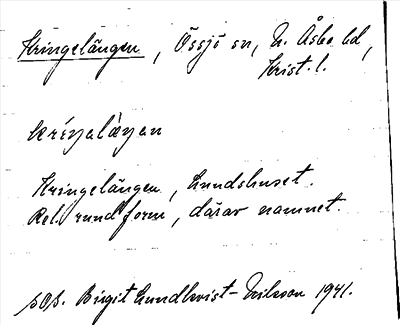 Kringelängen, Össjö sn, N. Åsbo hd,
Krist. l.
kriŋəlàŋən
Kringelängen, Lundshuset.
Rel. rund form, därav namnet.
Birgit Lundkvist-Nilsson 1941.